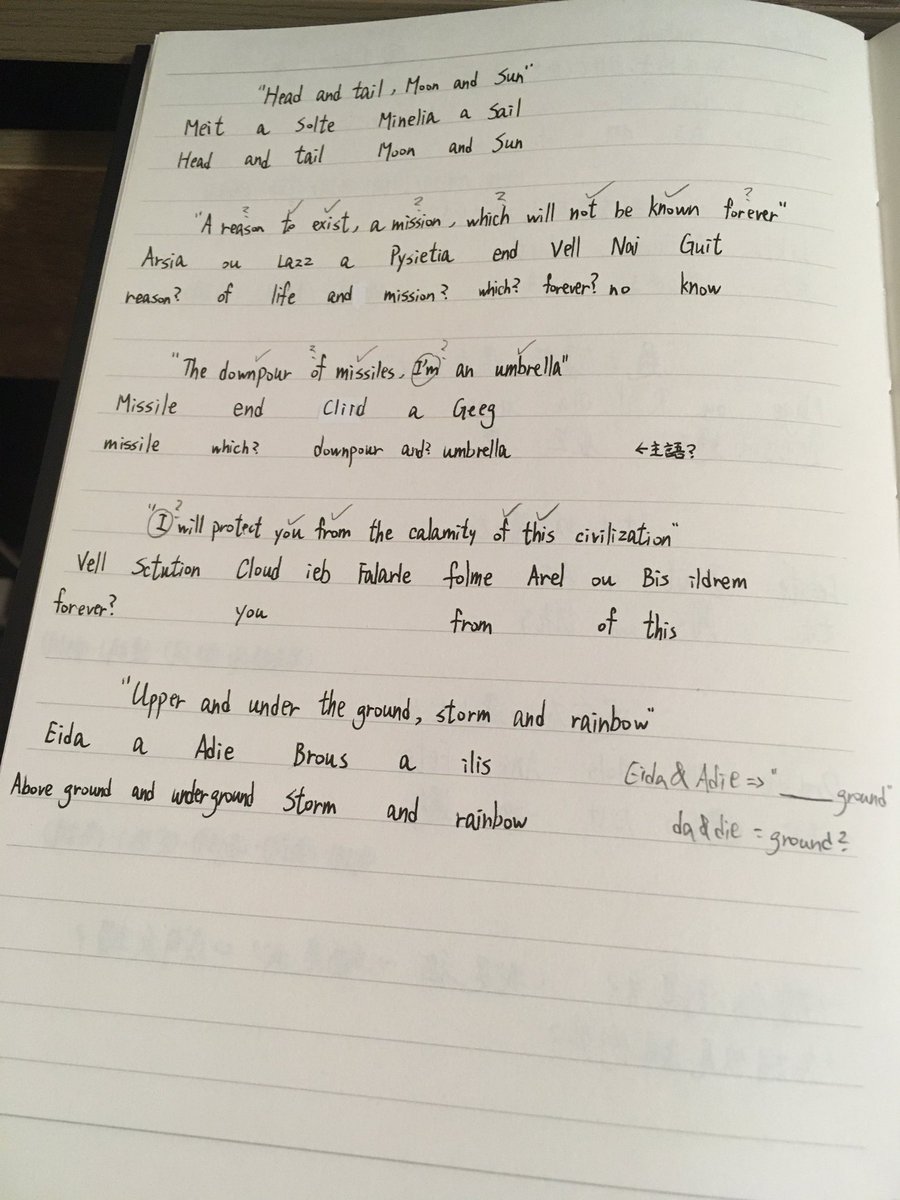 "Head and tail, Moon and Sun"
Meit a Solte Minelia a Sail
Head and tail Moon and Sun
? ✓ ✓ ? ? ✓ ✓ ?
"A reason to exist, a mission, which will not be known forever"
Arsia ou Lazz a Pysietia end Vell Nai Guit
reason? of life and mission? which? forever? no know
✓ ? ✓ ? ✓
"The downpour of missiles, I'm an umbrella"
Missile end Clird a Geeg
missile which? downpour and? umbrella ←主語?
? ✓ ✓ ✓ ✓
"I will protect you from the calamity of this civilization"
Vell Sctution Cloud ieb Falarle folme Arel ou Bis ildrem
forever? you from of this
"Upper and under the ground, storm and rainbow"
Eida a Adie Brous a ilis
Above ground and underground storm and rainbow
Eida & Adie => "___ ground"
da & die = ground?